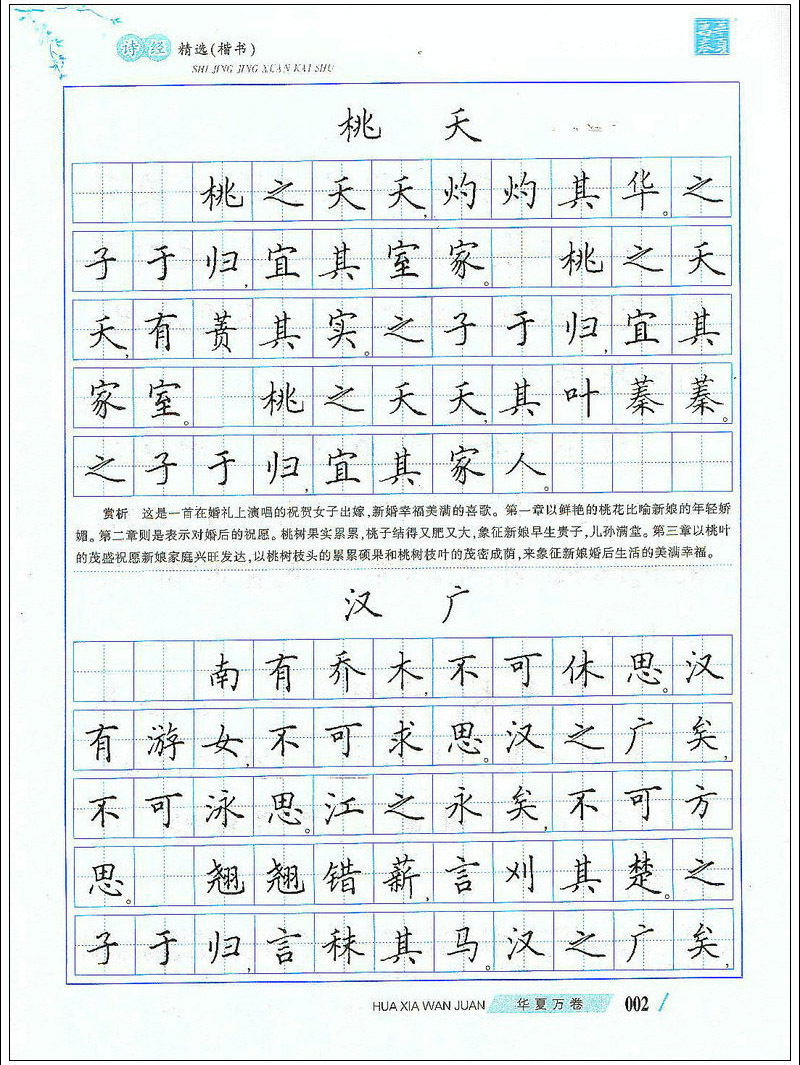 诗经 精选(楷书)
SHI JING JING XUAN KAI SHU
桃 夭
桃之夭夭,灼灼其华。之
子于归,宜其室家。 桃之夭
夭,有蕡其实。之子于归,宜其
家室。 桃之夭夭,其叶蓁蓁。
之子于归,宜其家人。
赏析 这是一首在婚礼上演唱的祝贺女子出嫁,新婚幸福美满的喜歌。第一章以鲜艳的桃花比喻新娘的年轻娇
媚。第二章则是表示对婚后的祝愿。桃树果实累累,桃子结得又肥又大,象征新娘早生贵子,儿孙满堂。第三章以桃叶
的茂盛祝愿新娘家庭兴旺发达,以桃树枝头的累累硕果和桃树枝叶的茂密成荫,来象征新娘婚后生活的美满幸福。
汉 广
南有乔木,不可休思。汉
有游女,不可求思。汉之广矣,
不可泳思。江之永矣,不可方
思。 翘翘错薪,言刈其楚。之
子于归,言秣其马。汉之广矣,
HUA XIA WAN JUAN 华夏万卷 002